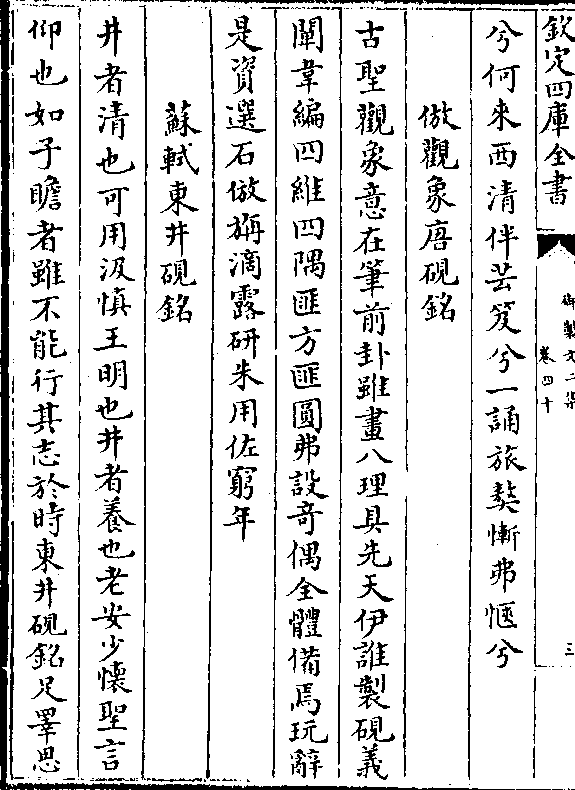 欽定四庫全書
御製文二集
卷四十
三
兮何來西清伴芸笈兮一誦旅獒慚弗愜兮
倣觀象唐硯銘
古聖觀象意在筆前卦雖畫八理具先天伊誰製硯義
闡韋編四維四隅匪方匪圓弗設奇偶全體備焉玩辭
是資選石倣旃滴露研朱用佐窮年
蘇軾東井硯銘
井者清也可用汲慎王明也井者養也老安少懷聖言
仰也如子瞻者雖不能行其志於時東井硯銘足睪思